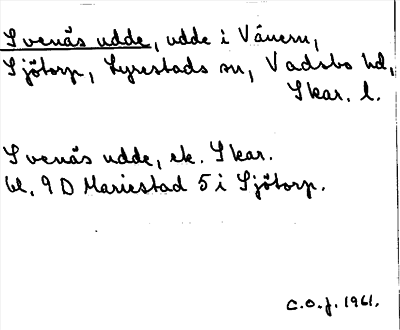 Svenäs udde, udde i Vänern,
Sjötorp, Lyrestads sn, Vadsbo hd,
Skar. l.
Svenäs udde, ek. Skar.
bl. 9 D Mariestad 5 i Sjötorp.
C.O.J. 1961.